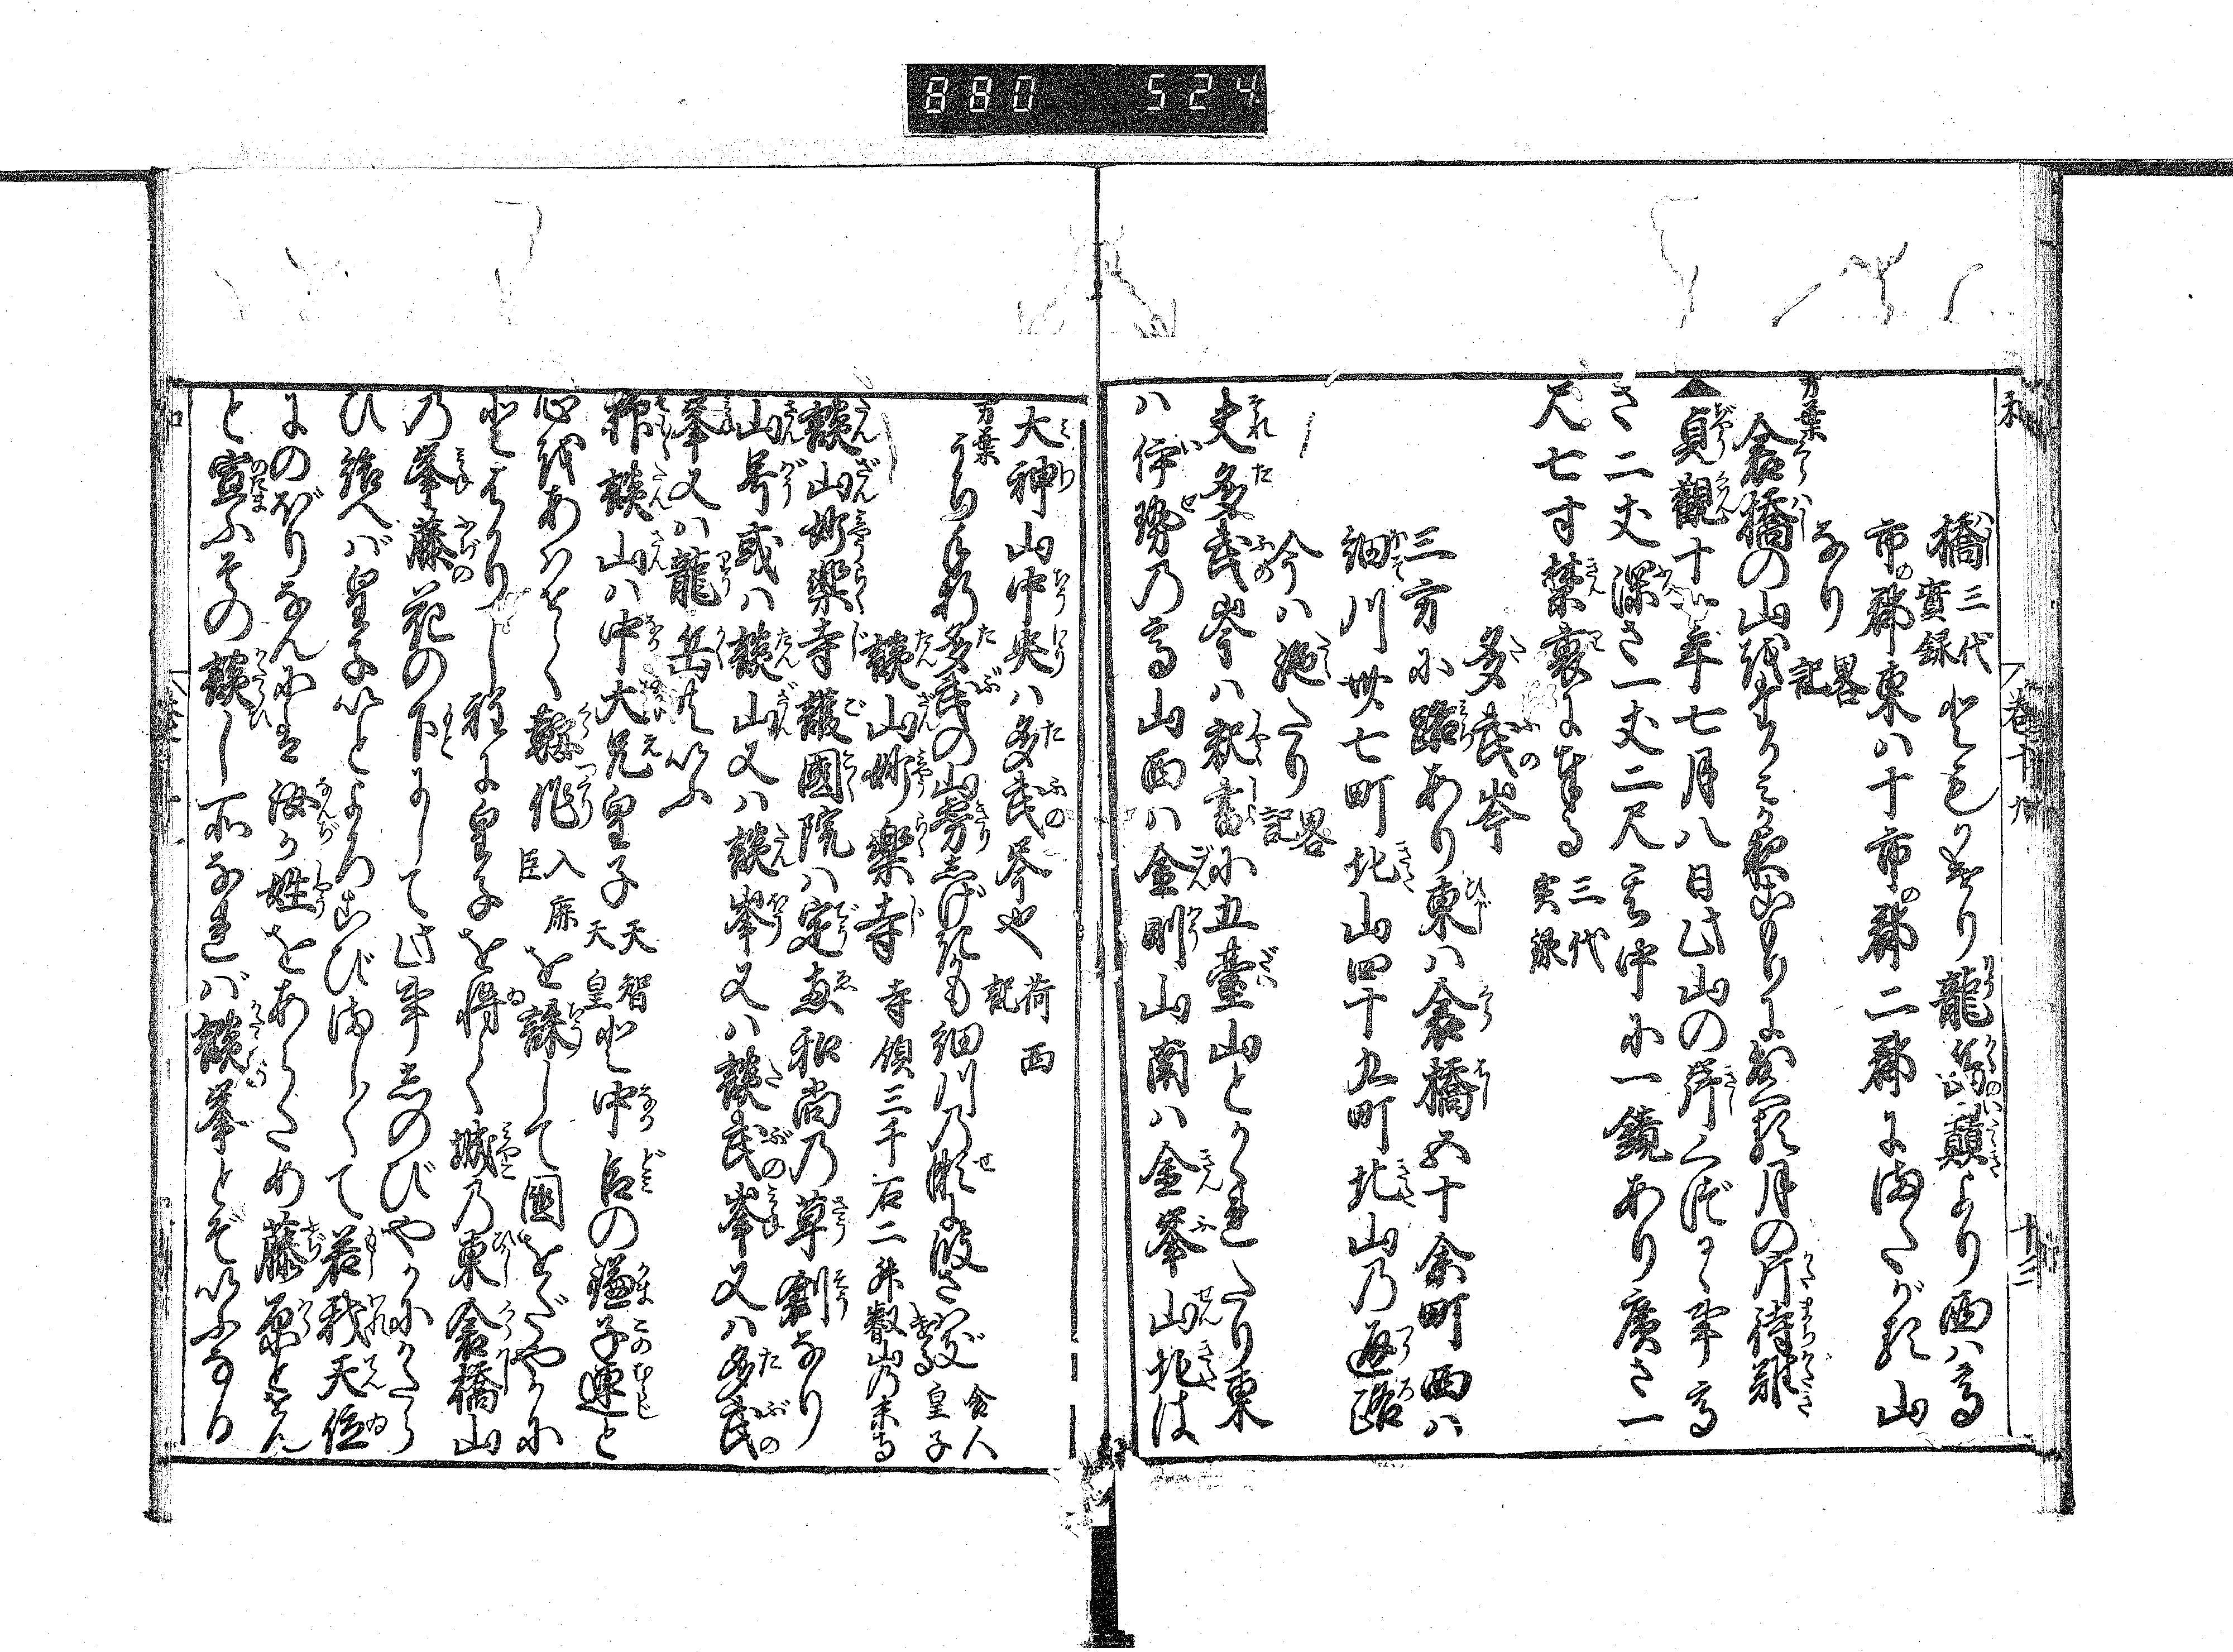 880 524
和 巻十九 十三
橋三代實録とも見えたり龍岳巓より西ハ高
市郡東ハ十市郡二郡にまたがる山
なり畧記
万葉
倉橋の山をたかミか夜ごもりに出くる月の片待難
▲貞觀十一年七月八日此山の岸くづるゝ事高
さ二丈深さ一丈二尺其中に一鏡あり廣さ一
尺七寸禁裏に奉る三代実録
多武岑
三方に路あり東ハ倉橋五十余町西ハ
細川卅七町北山四十九町北山乃通路
今ハ絶たり畧記
夫多武岑ハ釈書に五臺山とかれたり東
ハ伊勢乃高山西ハ金剛山南ハ金峯山北は
大神山中央ハ多武岑也荷西記
万葉
うちたをり多武の山霧しげきかも細川乃瀬に波さはぎける舎人皇子
談山妙樂寺 寺領三千石二斗叡山乃末寺
談山妙樂寺護國院ハ定恵和尚乃草創なり
山号或ハ談山又ハ談峯又ハ談武峯又ハ多武の
峯又ハ龍岳共いふ
抑談山ハ中大兄皇子天智天皇と中臣の鎌子連と
心をあハせて鞍作入鹿臣を誅して國をおだやかに
とはかりし程に皇子を得て城乃東倉橋山
乃峯藤花の下にして此事しのびやかにかたら
ひ給へバ皇子いとよろこびましくて若我天位
にのぼりなんにハ汝か姓をあらため藤原とせん
と宣ふその談し所なれバ談峯とぞいふなり